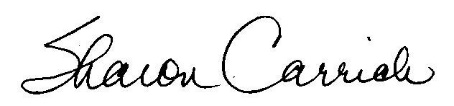 Sharon Carrick